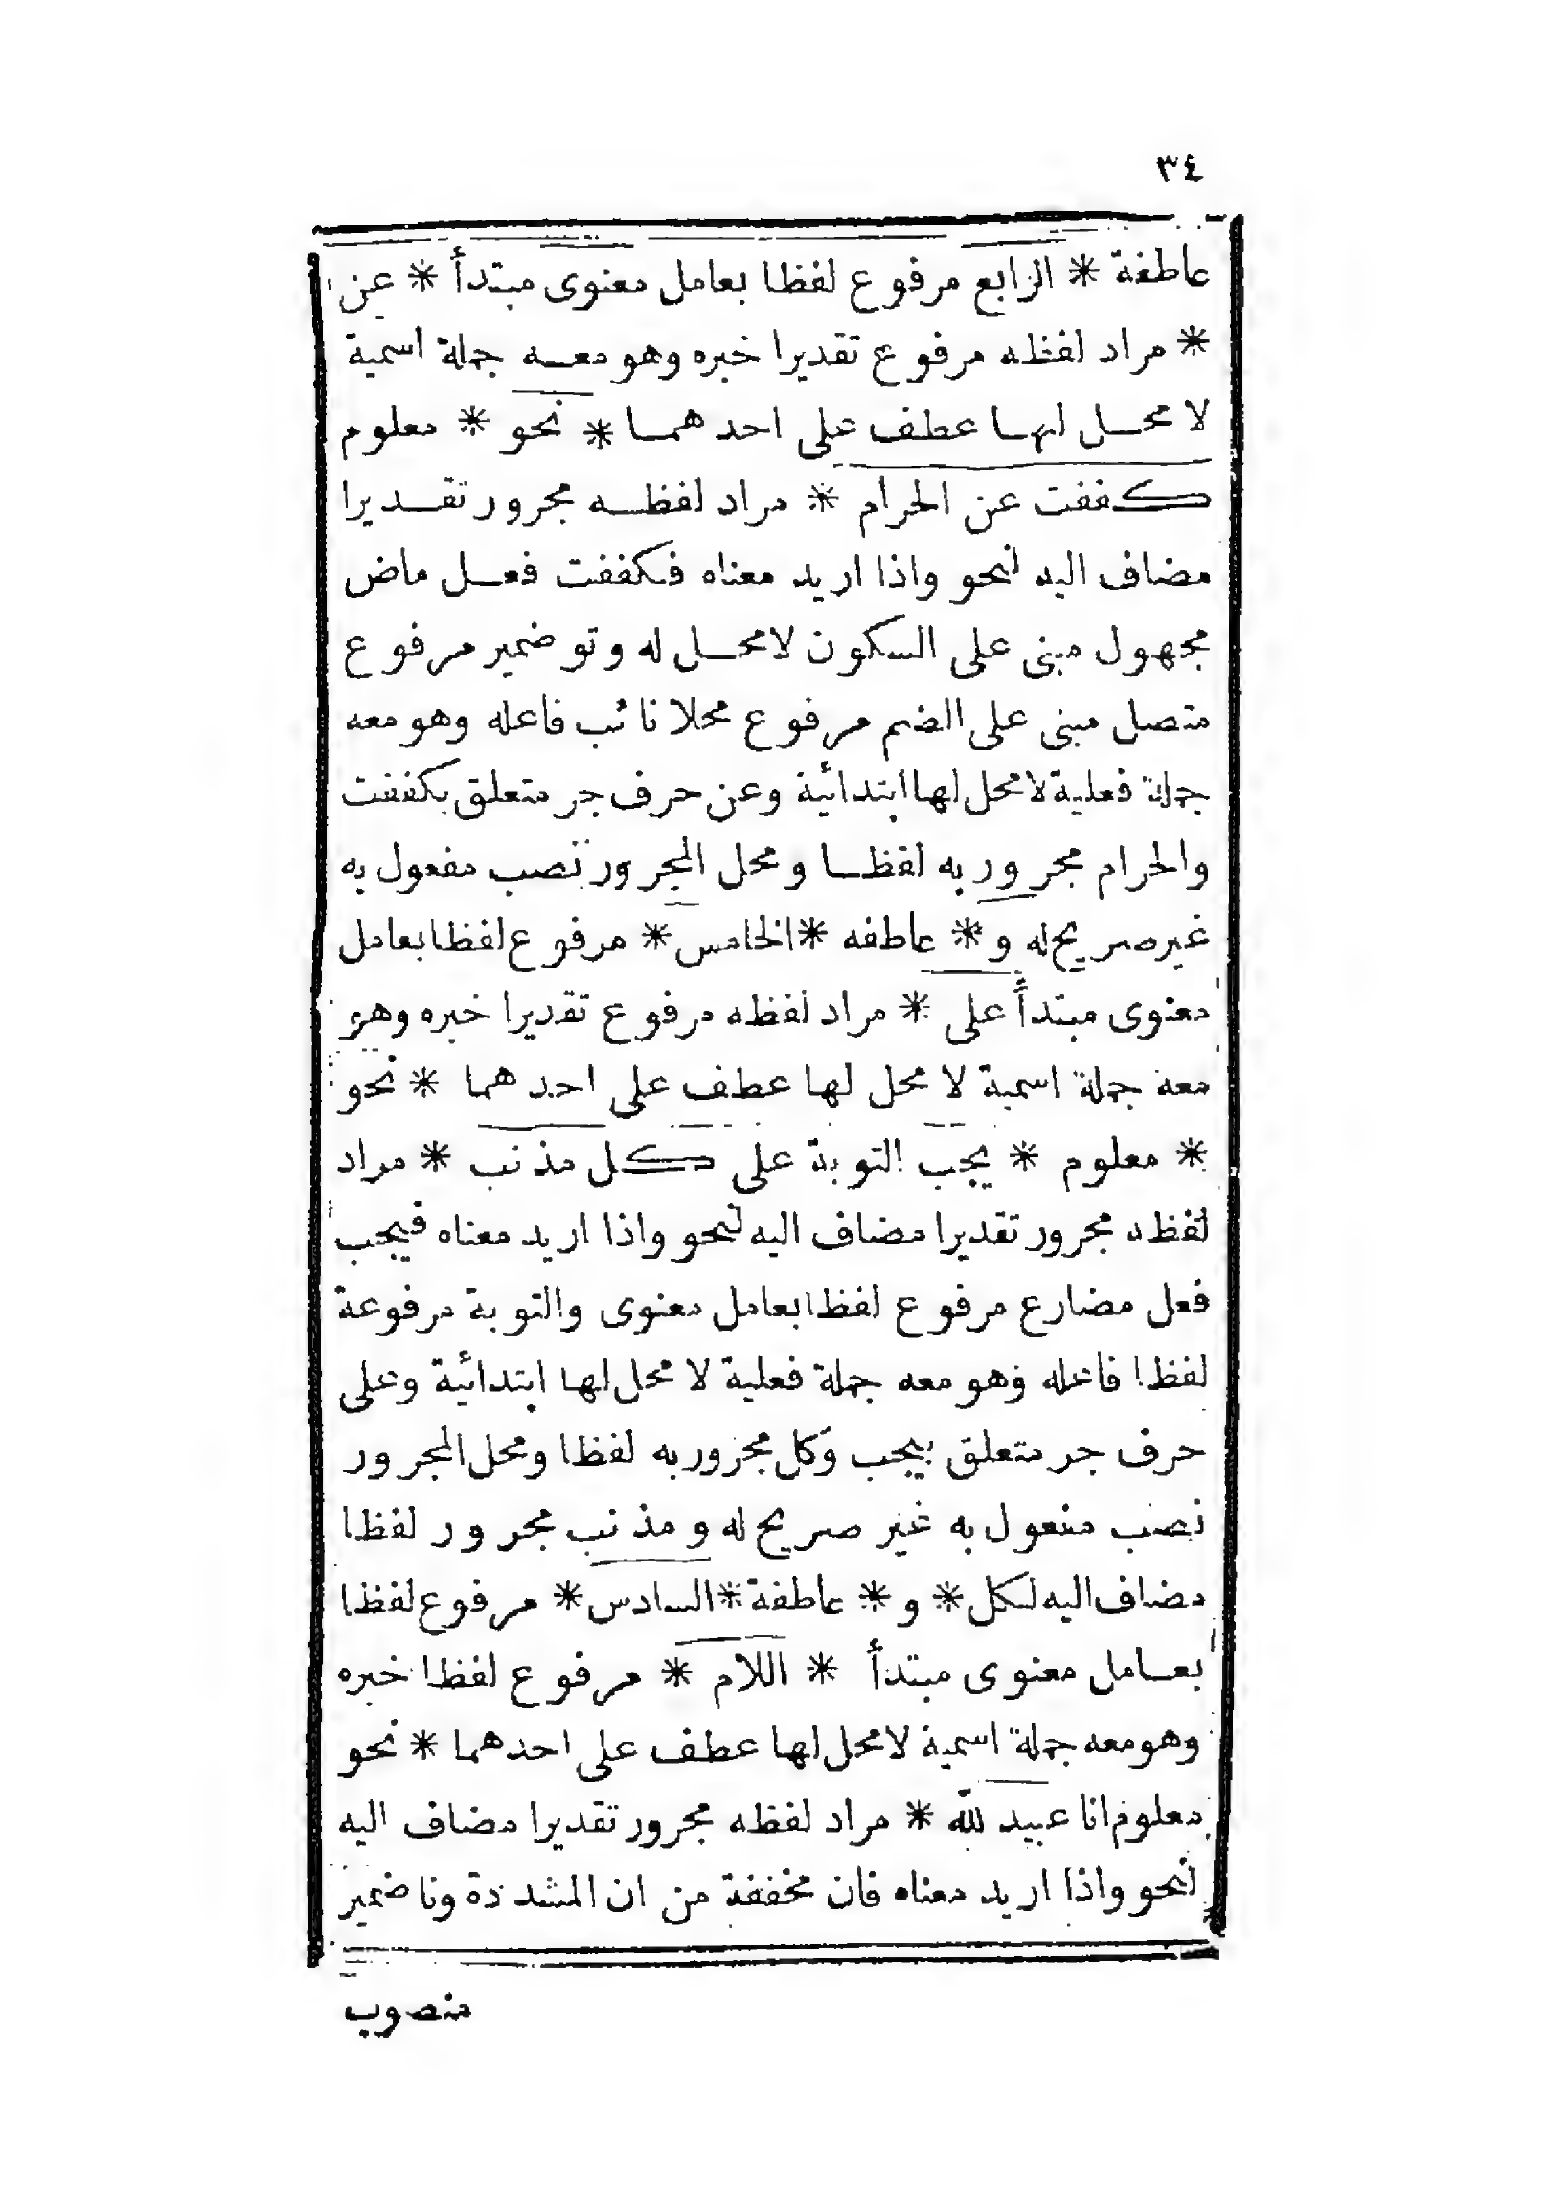 ٣٤
عاطفة * الرابع مرفوع لفظا بعامل معنوى مبتدأ * عن
* مراد لفظه مرفوع تقديرا خبره وهو معه جملة اسمية
لا محل لها عطف على احدهما * نحو * معلوم
كففت عن الحرام * مراد لفظه مجرور تقديرا
مضاف اليه لنحو واذا اريد معناه فكففت فعل ماض
مجهول مبنى على السكون لا محل له وتو ضمير مرفوع
متصل مبنى على الضم مرفوع محلا نائب فاعله وهو معه
جملة فعلية لا محل لها ابتدائية وعن حرف جر متعلق بكففت
والحرام مجرور به لفظا ومحل المجرور نصب مفعول به
غير صريح له و * عاطفه * الخامس * مرفوع لفظا بعامل
معنوى مبتدأ على * مراد لفظه مرفوع تقديرا خبره وهو
معه جملة اسمية لا محل لها عطف على احدهما * نحو
* معلوم * يجب التوبة على كل مذنب * مراد
لفظه مجرور تقديرا مضاف اليه لنحو واذا اريد معناه فيجب
فعل مضارع مرفوع لفظا بعامل معنوى والتوبة مرفوعة
لفظا فاعله وهو معه جملة فعلية لا محل لها ابتدائية وعلى
حرف جر متعلق بيجب وكل مجرور به لفظا ومحل المجرور
نصب مفعول به غير صريح له ومذنب مجرور لفظا
مضاف اليه لكل * و * عاطفة * السادس * مرفوع لفظا
بعامل معنوى مبتدأ * اللام * مرفوع لفظا خبره
وهو معه جملة اسمية لا محل لها عطف على احدهما * نحو
معلوم انا عبيد لله * مراد لفظه مجرور تقديرا مضاف اليه
لنحو واذا اريد معناه فان مخففة من ان المشددة ونا ضمير
منصوب